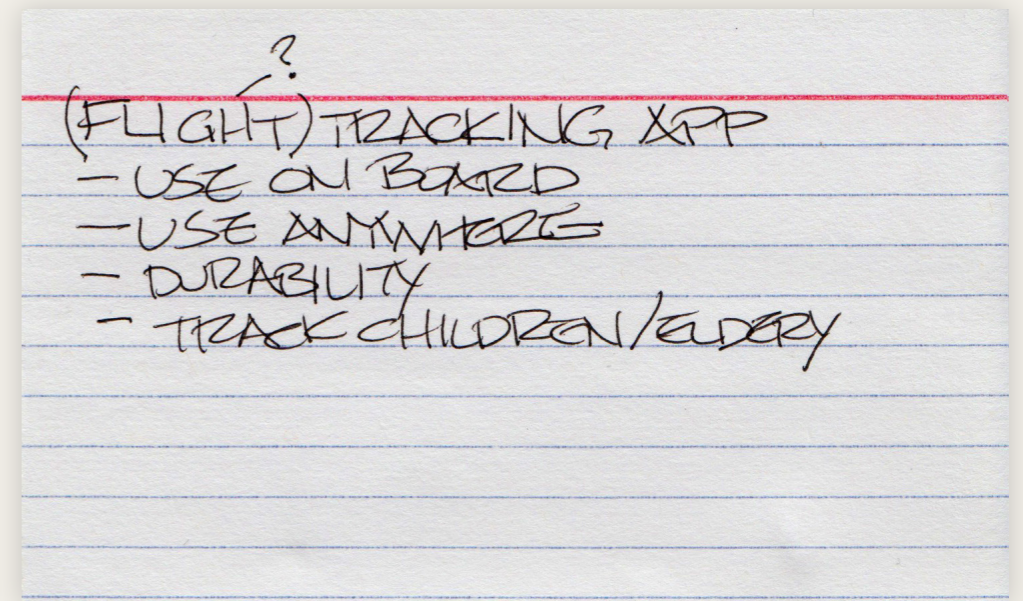 ?
(FLIGHT) TRACKING APP
- USE ON BOARD
- USE ANYWHERE
- DURABILITY
- TRACK CHILDREN/ELDERY